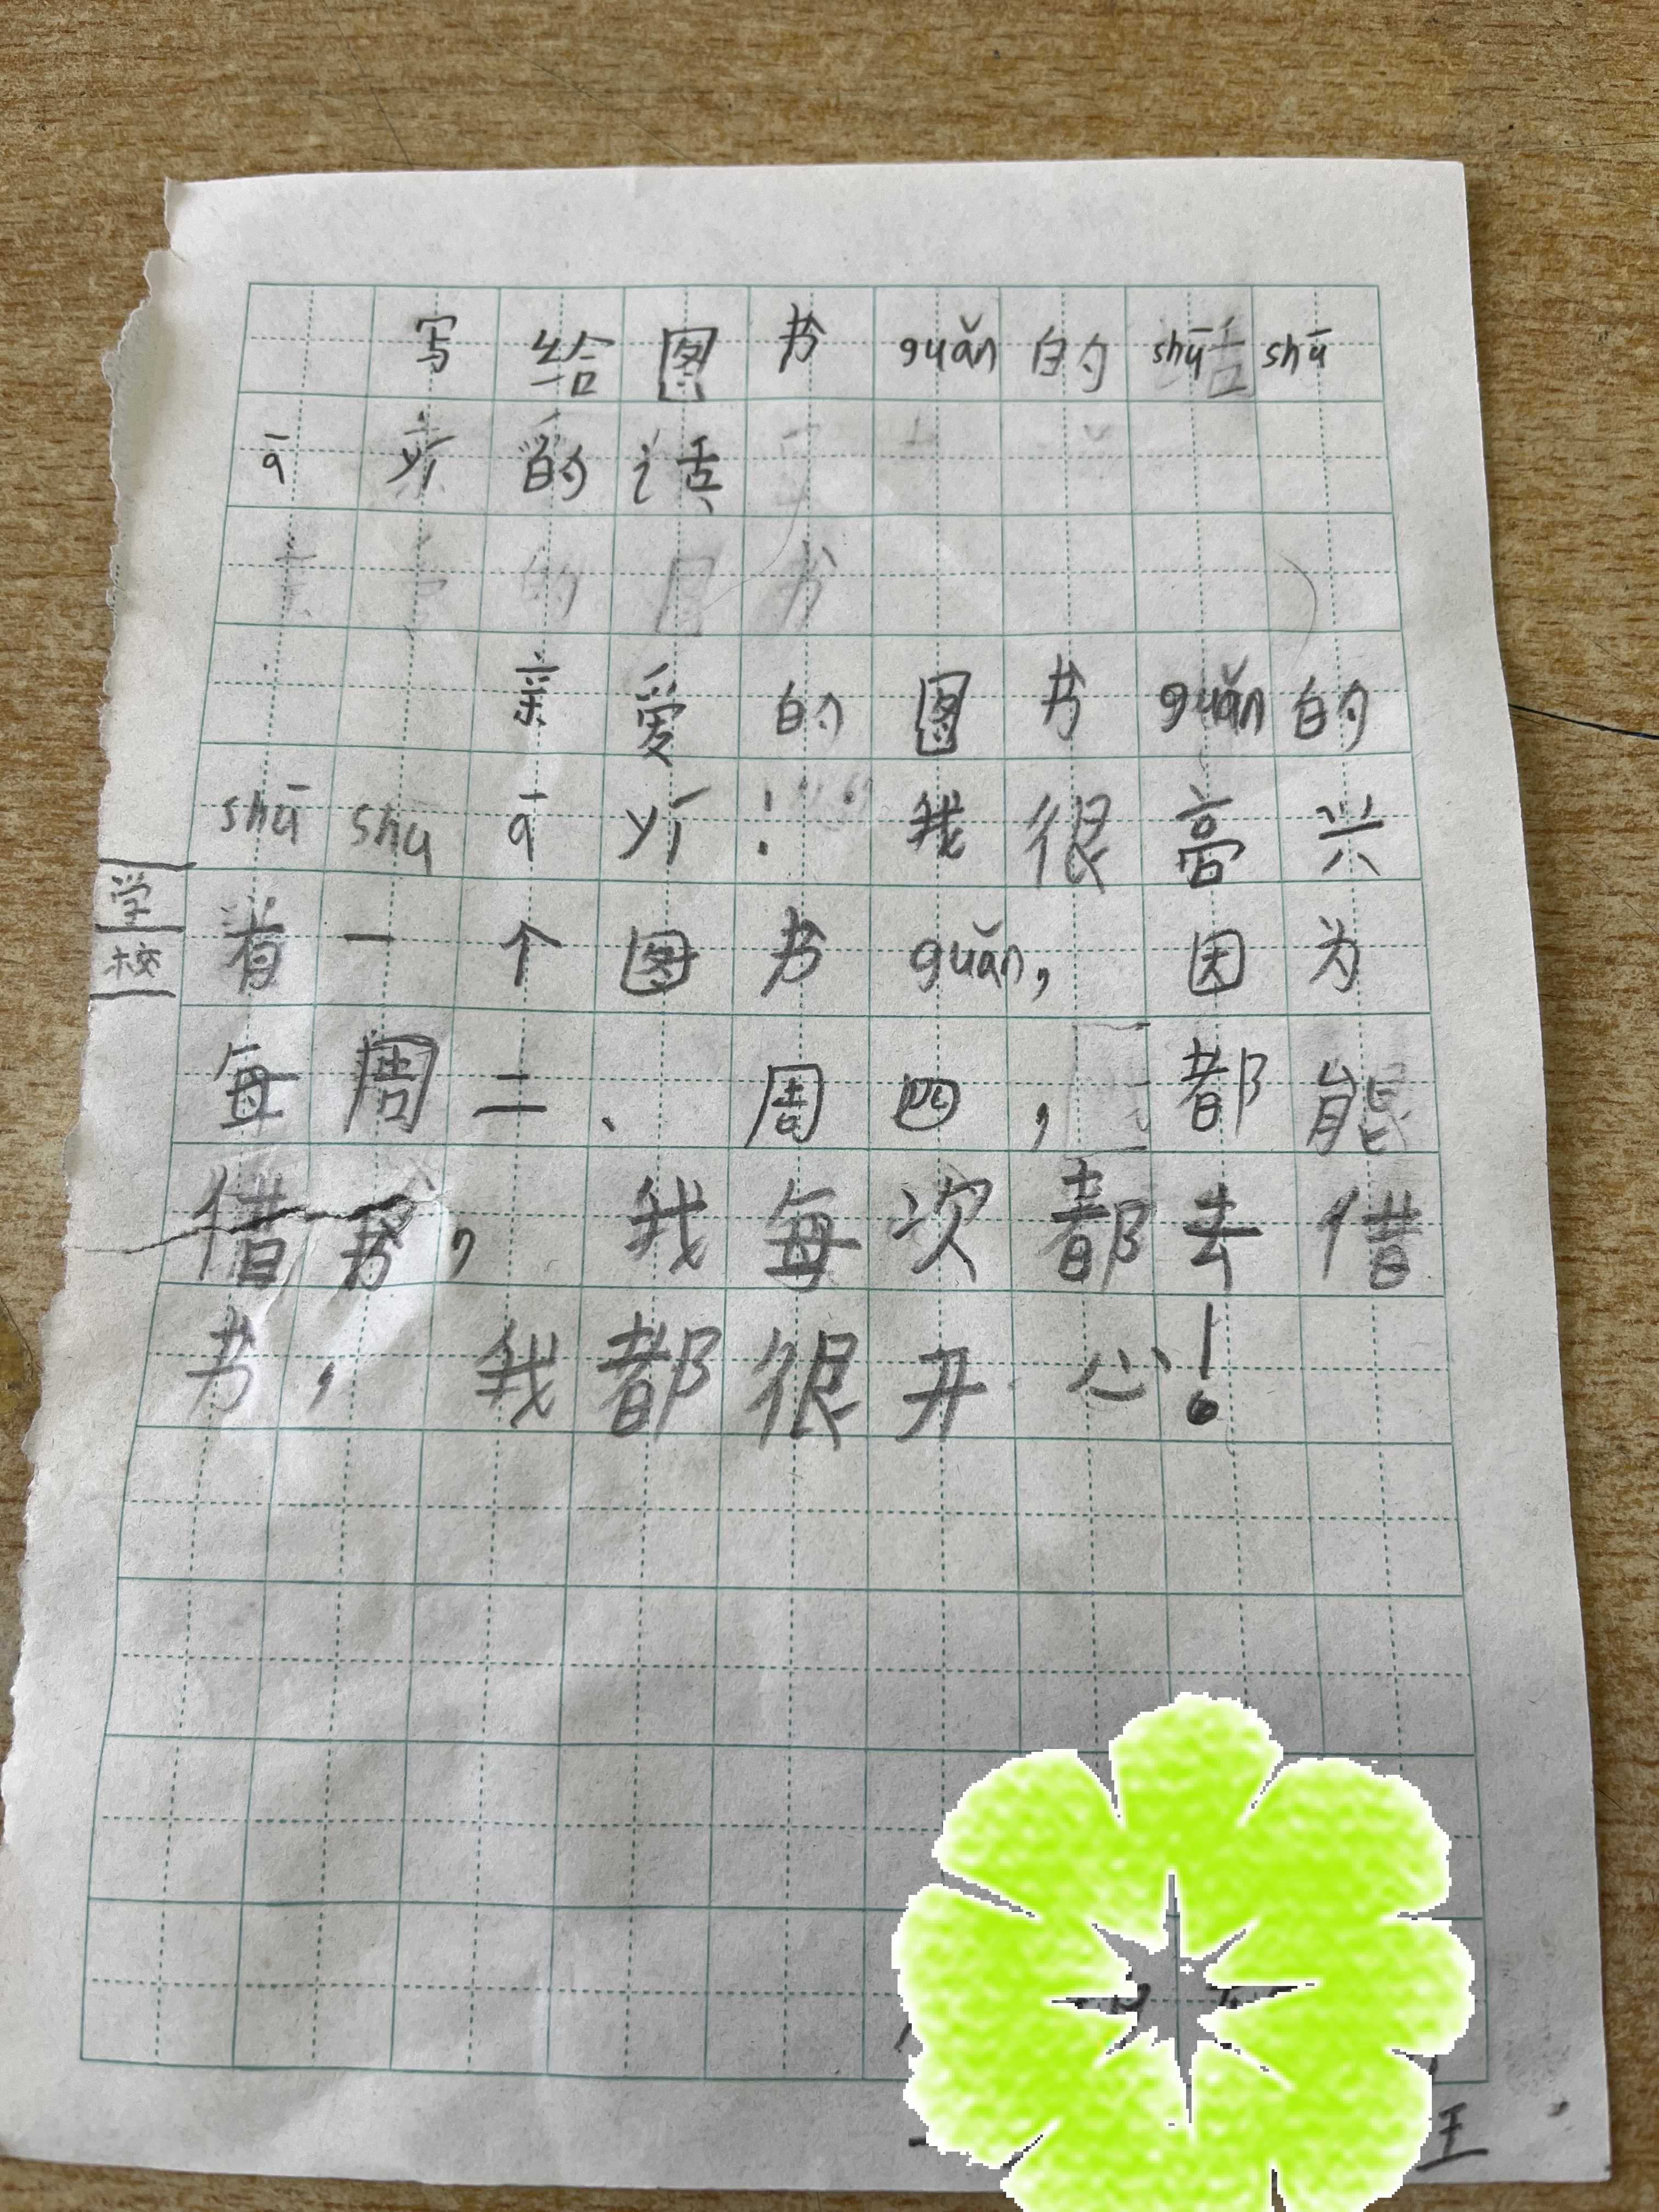 写给图书guǎn的shūshū
āyí的话
亲爱的图书guǎn的
shūshuāyí！我很高兴
学校
有一个图书guǎn，因为
每周二、周四，都能
借书，我每次都去借
书，我都很开心！
王